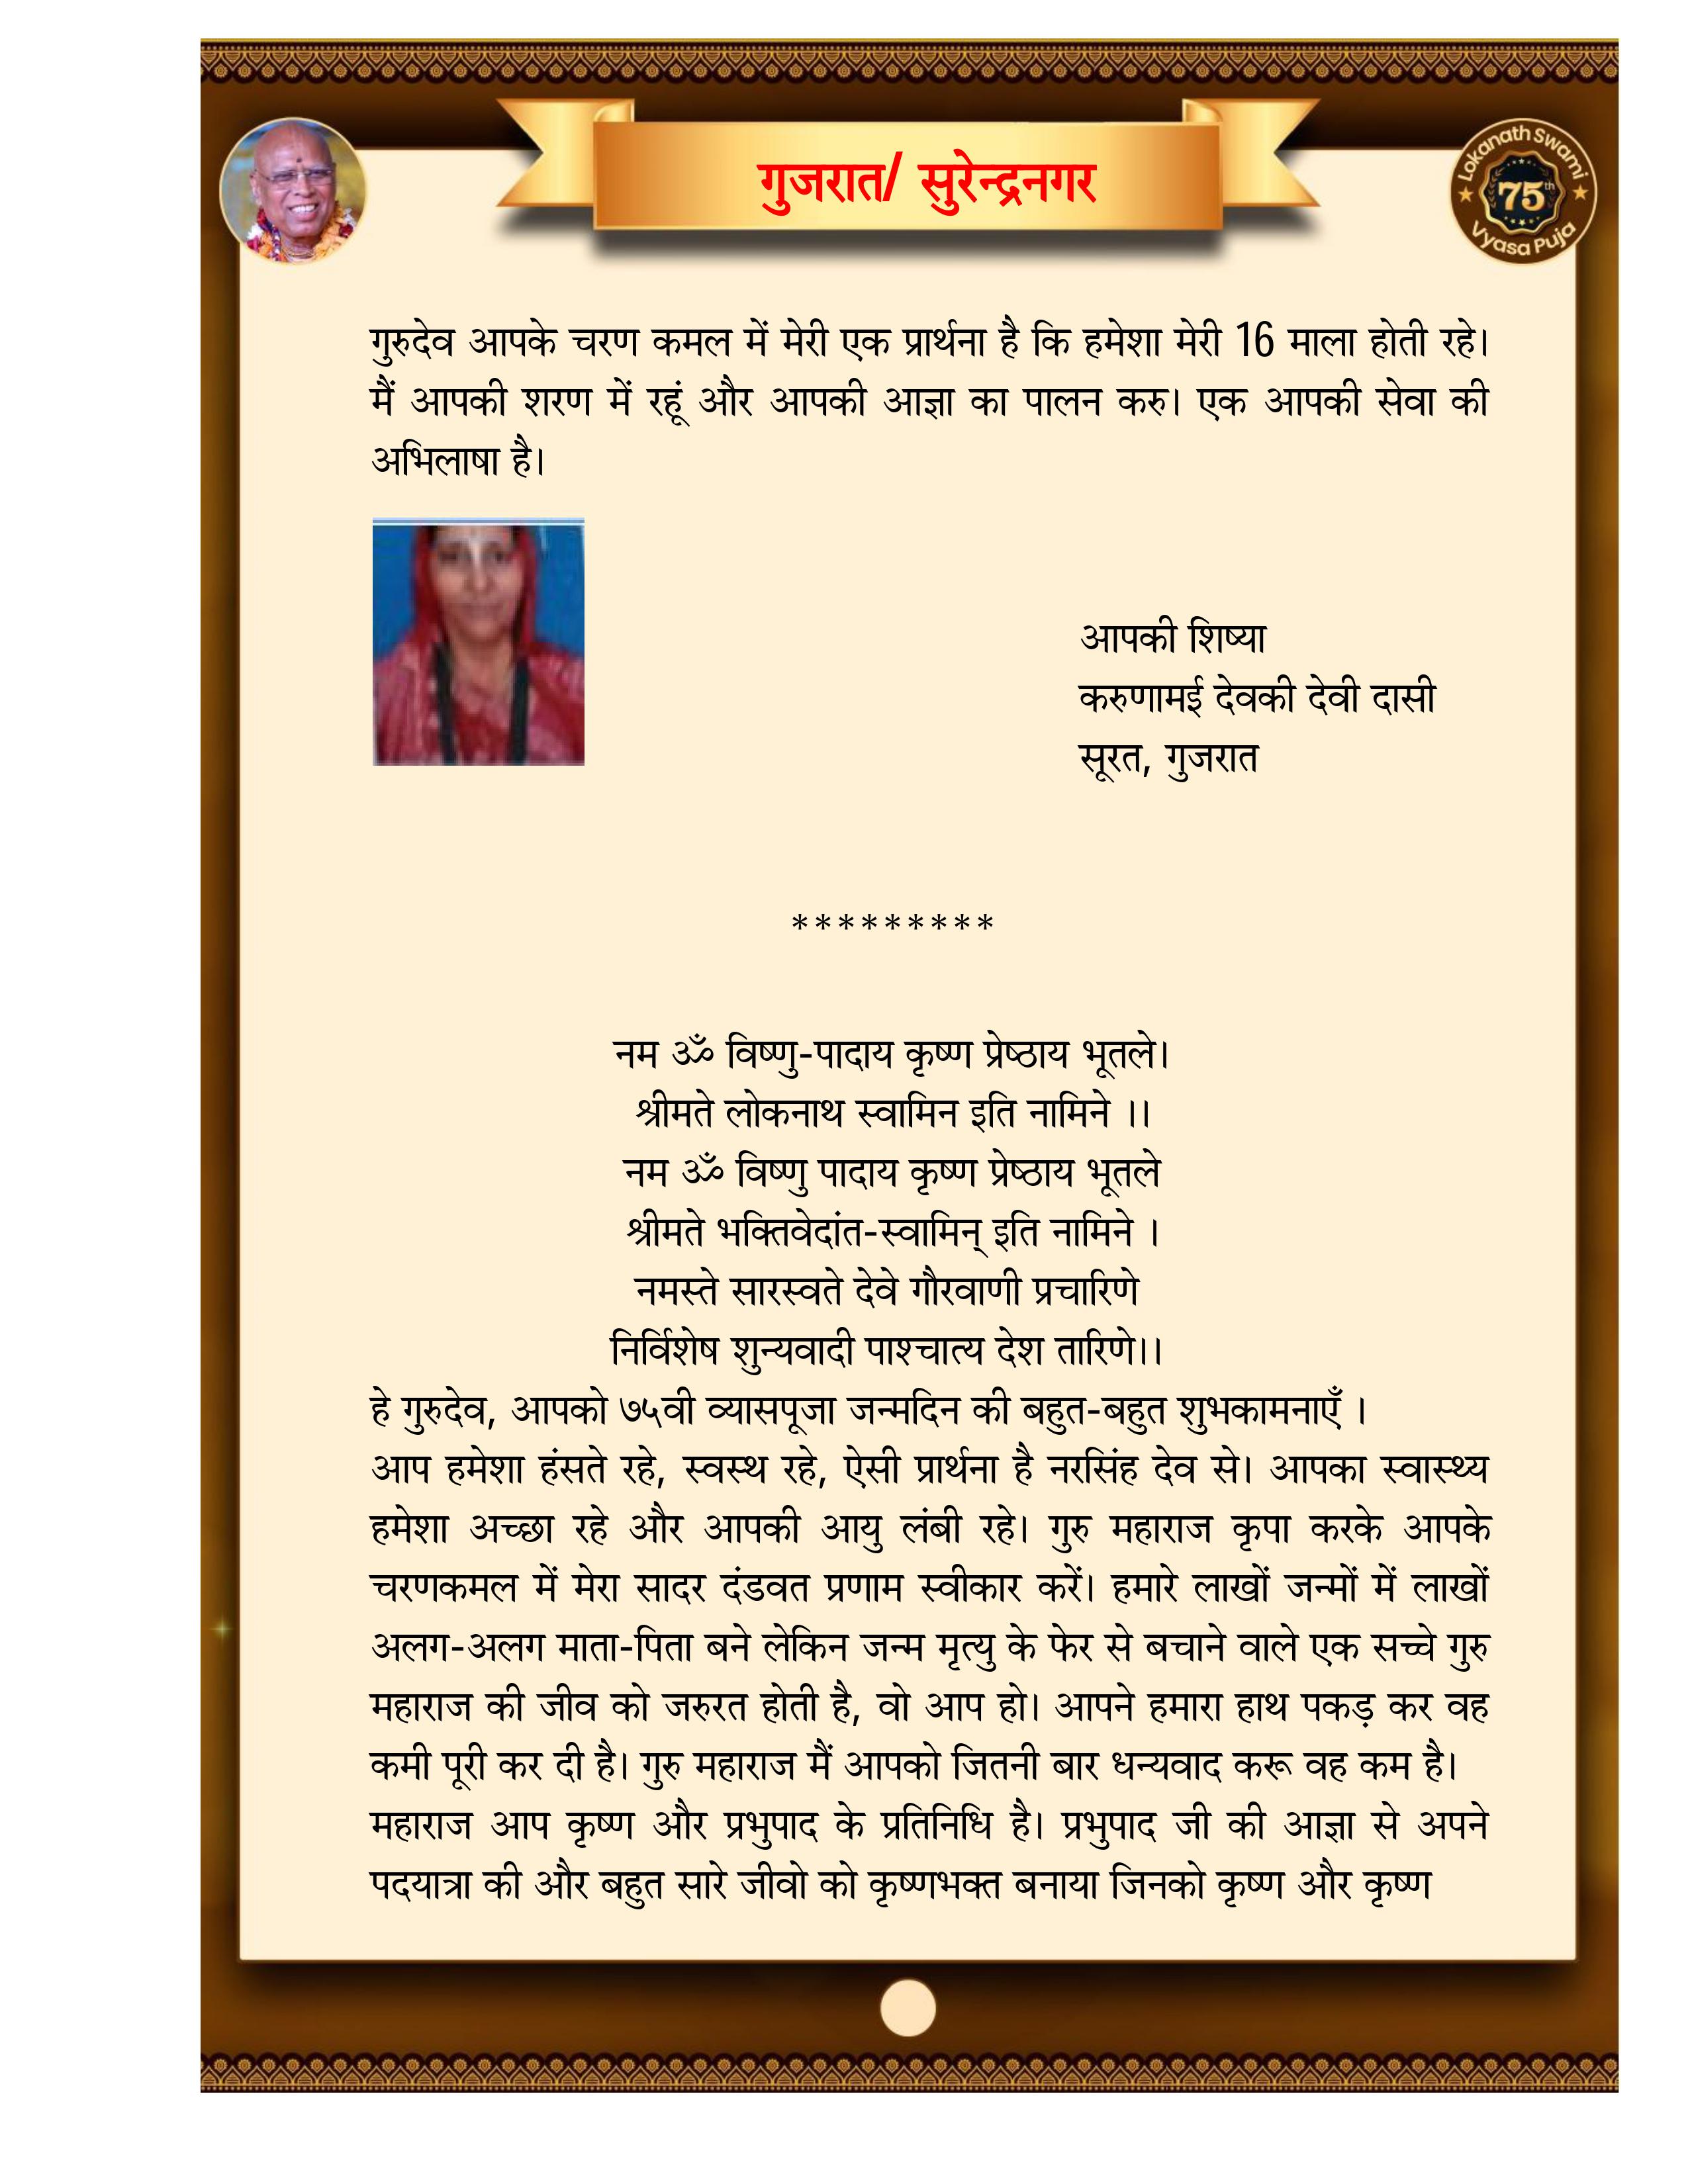 गुजरात/ सुरेन्द्रनगर
Lokanath Swami
75th
Vyasa Puja
गुरुदेव आपके चरण कमल में मेरी एक प्रार्थना है कि हमेशा मेरी 16 माला होती रहे।
मैं आपकी शरण में रहूं और आपकी आज्ञा का पालन करु। एक आपकी सेवा की
अभिलाषा है।
आपकी शिष्या
करुणामई देवकी देवी दासी
सूरत, गुजरात
*********
नम ॐ विष्णु-पादाय कृष्ण प्रेष्ठाय भूतले।
श्रीमते लोकनाथ स्वामिन इति नामिने ।।
नम ॐ विष्णु पादाय कृष्ण प्रेष्ठाय भूतले
श्रीमते भक्तिवेदांत-स्वामिन् इति नामिने ।
नमस्ते सारस्वते देवे गौरवाणी प्रचारिणे
निर्विशेष शुन्यवादी पाश्चात्य देश तारिणे।।
हे गुरुदेव, आपको ७५वी व्यासपूजा जन्मदिन की बहुत-बहुत शुभकामनाएँ ।
आप हमेशा हंसते रहे, स्वस्थ रहे, ऐसी प्रार्थना है नरसिंह देव से। आपका स्वास्थ्य
हमेशा अच्छा रहे और आपकी आयु लंबी रहे। गुरु महाराज कृपा करके आपके
चरणकमल में मेरा सादर दंडवत प्रणाम स्वीकार करें। हमारे लाखों जन्मों में लाखों
अलग-अलग माता-पिता बने लेकिन जन्म मृत्यु के फेर से बचाने वाले एक सच्चे गुरु
महाराज की जीव को जरुरत होती है, वो आप हो। आपने हमारा हाथ पकड़ कर वह
कमी पूरी कर दी है। गुरु महाराज मैं आपको जितनी बार धन्यवाद करू वह कम है।
महाराज आप कृष्ण और प्रभुपाद के प्रतिनिधि है। प्रभुपाद जी की आज्ञा से अपने
पदयात्रा की और बहुत सारे जीवो को कृष्णभक्त बनाया जिनको कृष्ण और कृष्ण